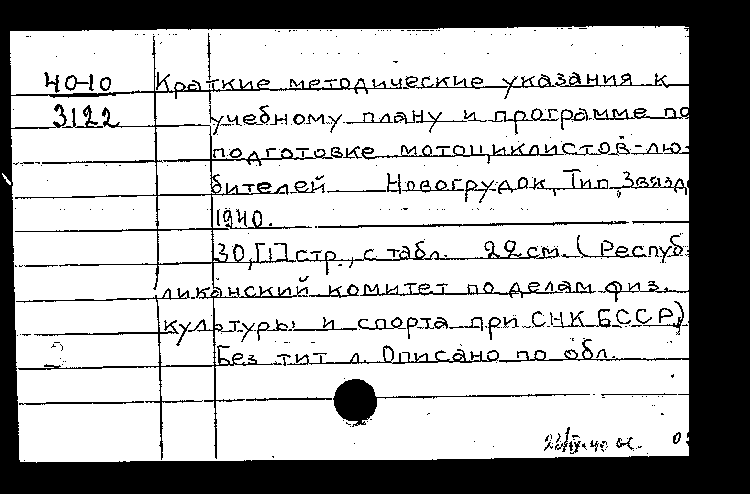 40-10 Краткие методические указания к
3122 учебному плану и программе по
подготовке мотоциклистов-лю-
бителей Новогрудок, Тип. Звязд
1940.
30, [1] стр., с табл. 22 см. (Респуб-
ликанский комитет по делам физ.
культуры и спорта при СНК БССР)
Без тит л. Описано по обл.